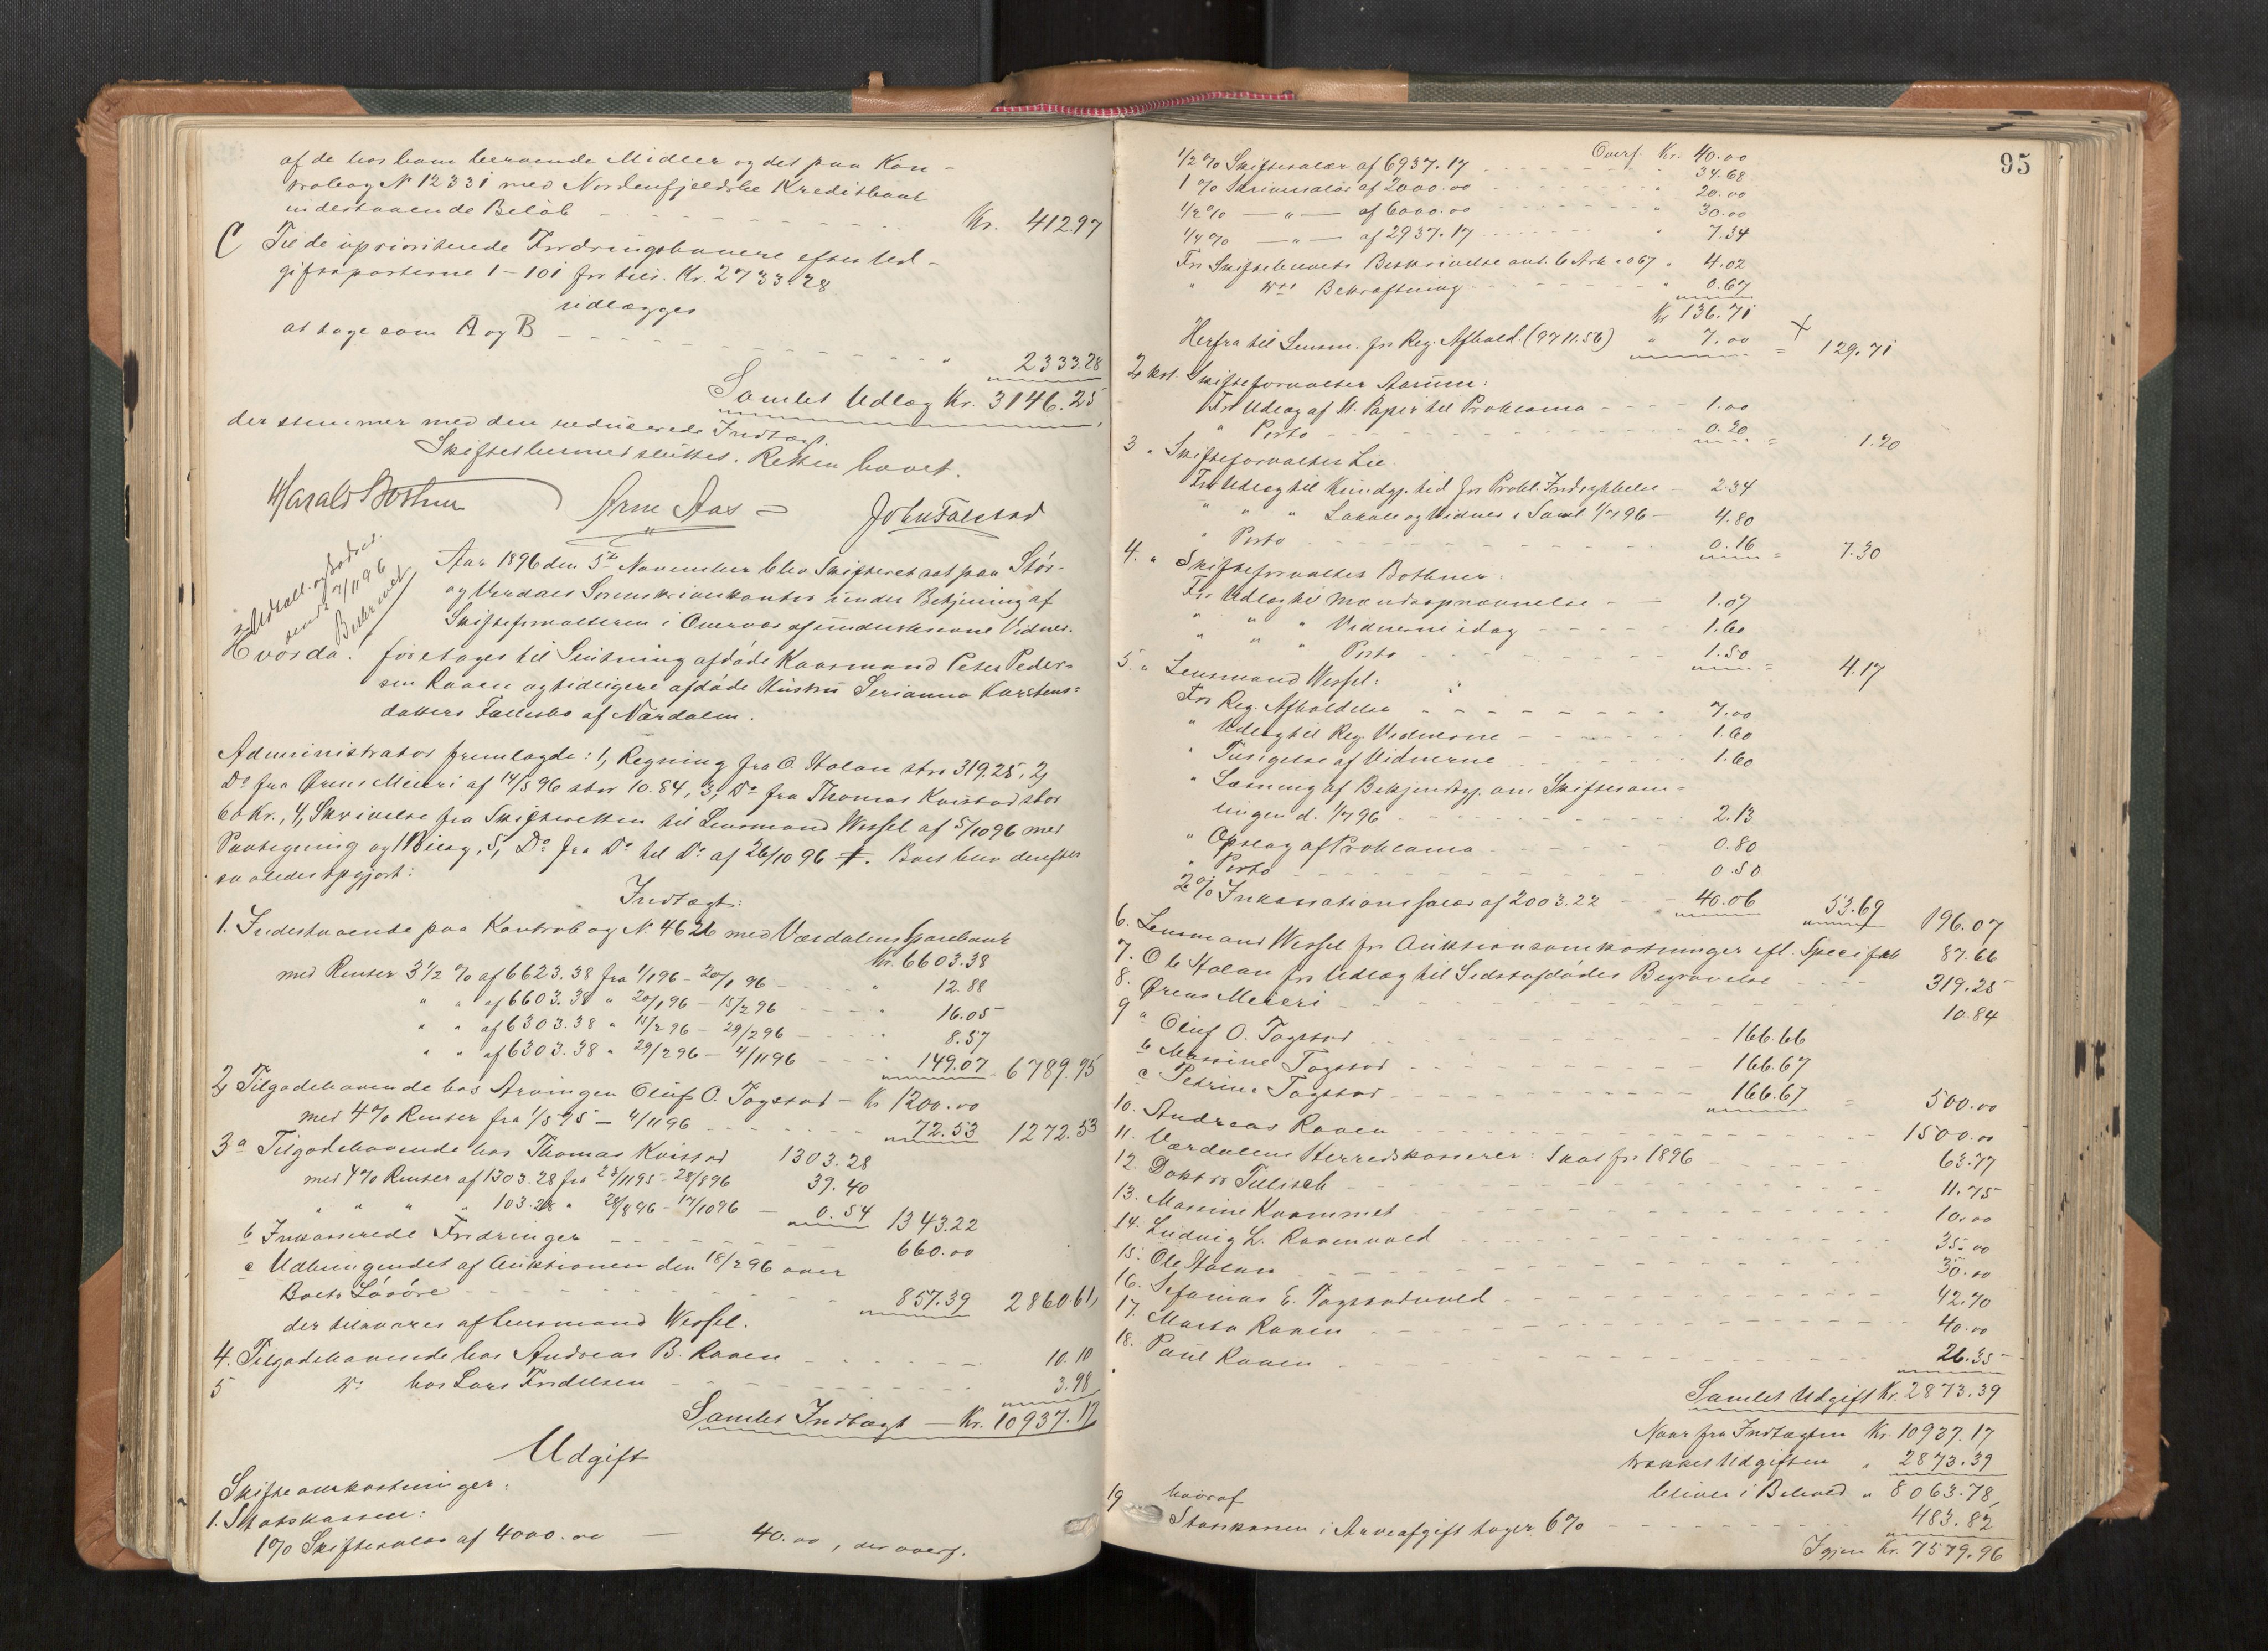 af de hos ham beroende Midler og det paa Kon-
trabog N 12331 med Nordenfjeldske Kreditbank
indestaaende Beløb - - - Kr. 412.97
C Til de uprioriterede Fordringshavere efter Ud-
giftsposterne 1-101 for tils. Kr. 2733.28
udlægges
at tage som A og B - - - " 2333.28
Samlet Udlæg Kr. 3146.25
der stemmer med den reducerede Indtægt.
Skiftet hermed sluttet. Retten hævet.
Harald Bothner Arne Aas John Falstad
Aar 1896 den 5te November blev Skifteret sat paa Stør-
og Verdals Sorenskriverkontor under Betjening af
Skifteforvalteren i Overvær af underskrevne Vidner.
Hvorda:
foretoges til Slutning afdøde Kaarmand Peter Peder-
sen Raaen og tidligere afdøde Hustru Serianna Karstens-
datters Fællesbo af Værdalen.
Administrator fremlagde: 1, Regning fra O. Holan stor 319.25, 2,
Do fra Ørens Meieri af 14/5 96 stor 10.84, 3, Do fra Thomas Kvistad stor
60 Kr., 4, Skrivelse fra Skifteretten til Lensmand Wessel af 5/10 96 med
Paategning og 1 Bilag, 5, Do fra Do til Do af 26/10 96. Boet blev derefter
saaledes opgjort:
Indtægt:
1. Indestaaende paa Kontrabog N. 4626 med Værdalens Sparebank
Kr. 6603.38
med Renter 3 1/2 % af 6623.38 fra 1/1 96 - 20/1 96 - " 12.88
" " af 6603.38 " 20/1 96 - 15/2 96 - - " 16.05
" " af 6303.38 " 15/2 96 - 29/2 96 - - " 8.57
" " af 6303.38 " 29/2 96 - 4/11 96 - - " 149.07 6789.95
2, Tilgodehavende hos Arvingen Oluf O. Tagstad - Kr 1200.00
med 4% Renter fra 1/5 95 - 4/11 96 - - 72.53 1272.53
3 a Tilgodehavende hos Thomas Kvistad 1303.28
med 4% Renter af 1303.28 fra 23/11 95 - 28/8 96 39.40
" " " " 103.28 " 28/8 96 - 17/10 96 - 0.54 1343.22
b Inkasserede Fordringer - - - 660.00
c Udbringendet af Auktionen den 18/2 96 over
Boets Løsøre - - - 857.39 2860.61,
der tilsvares af Lensmand Wessel.
4. Tilgodehavende hos Andreas B. Raaen - - - 10.10
5 Do hos Lars Fredriksen - - - 3.98
Samlet Indtægt - Kr. 10937.17
Udgift
Skifteomkostninger:
1. Statskassen:
1% Skiftesalær af 4000.00 - 40.00, der overf.
95
Overf. Kr. 40.00
1/2 % Skiftesalær af 6937.17 - - - " 34.68
1 % Skriversalær af 2000.00 - - - " 20.00
1/2 % - " - af 6000.00 - - - " 30.00
1/4 % - " - af 2937.17 - - - " 7.34
For Skiftebrevets Beskrivelse ant. 6 Ark a 067 " 4.02
" Do's Bekræftning - - - " 0.67
Kr 136.71
Herfra til Lensm. for Reg. Afhold. (97 11.56) " 7.00 = 129.71
2 kst. Skifteforvalter Aarum:
For Udlæg af st. Papir til Proklama - - - 1.00
" Porto - - - 0.20 = 1.20
3 " Skifteforvalter Lie.
For Udlæg til Kundgj.tid for Prokl. Indrykkelse - 2.34
" " " Lokale og Vidner i Saml. 1/7 96 - 4.80
" Porto - - - 0.16 = 7.30
4. " Skifteforvalter Bothner:
For Udlæg til Mændsopnævnelse - - 1.07
" " " Vidnerne idag - - - 1.60
" " " Porto - - - 1.50 = 4.17
5. " Lensmand Wessel:
For Reg. Afholdelse - - - 7.00
" Udlæg til Reg. Vidnerne - - - 1.60
" Tilsigelse af Vidnerne - - - 1.60
" Læsning af Bekjendtgj. om Skiftesam-
lingen d. 1/7 96 - - - 2.13
" Opslag af Proklama - - - 0.80
" Porto - - - 0.50
2% Inkassationssalær af 2003.22 - - 40.06 53.69 196.07
6. Lensmand Wessel for Auktionsomkostninger efl. Specifik 87.66
7. O Holan for Udlæg til Sidstafdødes Begravelse - - 319.25
8. Ørens Meieri - - - 10.84
9 a Oluf O. Tagstad - - - 166.66
b Massine Tagstad - - - 166.67
c Petrine Tagstad - - - 166.67 = 500.00
10. Andreas Raaen - - - 1500.00
11. Værdalens Herredskasserer: Skat for 1896 - - - 63.77
12. Doktor Tullisch - - - 11.75
13. Massine Kvammet - - - 10.00
14. Ludvig L. Raaenvald - - - 35.00
15. Ole Holan - - - 30.00
16. Sefanias E. Tagstadvald - - - 42.70
17. Marta Raaen - - - 40.00
18. Paul Raaen - - - 26.35
Samlet Udgift Kr. 2873.39
Naar fra Indtægten Kr. 10937.17
trækkes Udgiften " 2873.39
blives i Behold " 8063.78,
19 hvoraf
Statskassen i Arveafgift tager 6% - - - 483.82
Igjen Kr. 7579.96